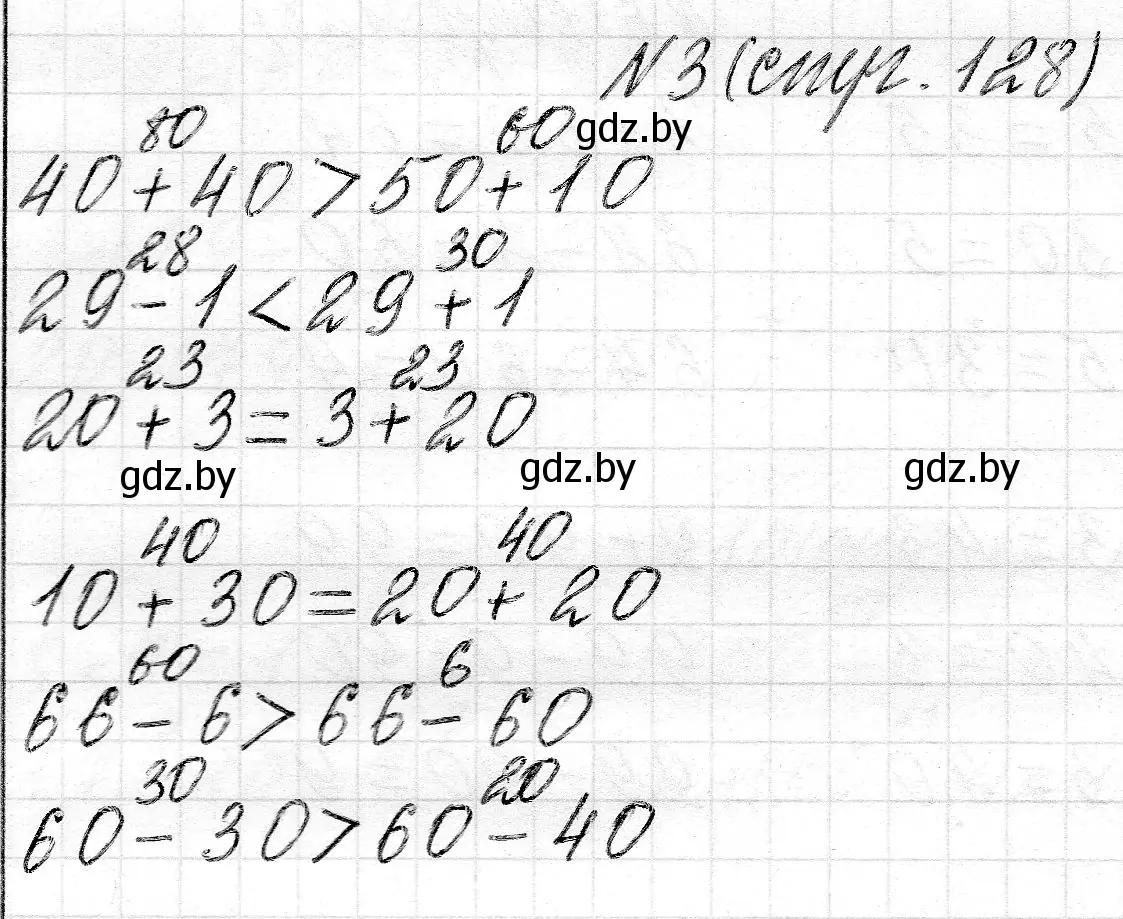 N3 (стр. 128)
80 60 gdz.by
40 + 40 > 50 + 10
28 30
29 - 1 < 29 + 1
23 23
20 + 3 = 3 + 20
gdz.by gdz.by gdz.by
40 40
10 + 30 = 20 + 20
60 6
66 - 6 > 66 - 60
30 20
60 - 30 > 60 - 40